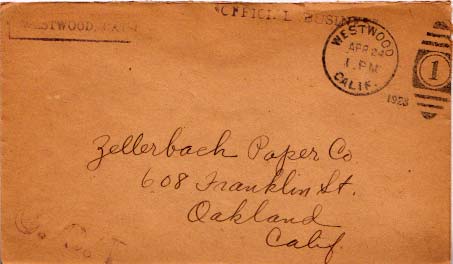 OFFICIAL BUSINESS
WESTWOOD, CAL.
WESTWOOD
APR 24
1 PM
CALIF.
1923
1
Zellerbach Paper Co
608 Franklin St.
Oakland
Calif.